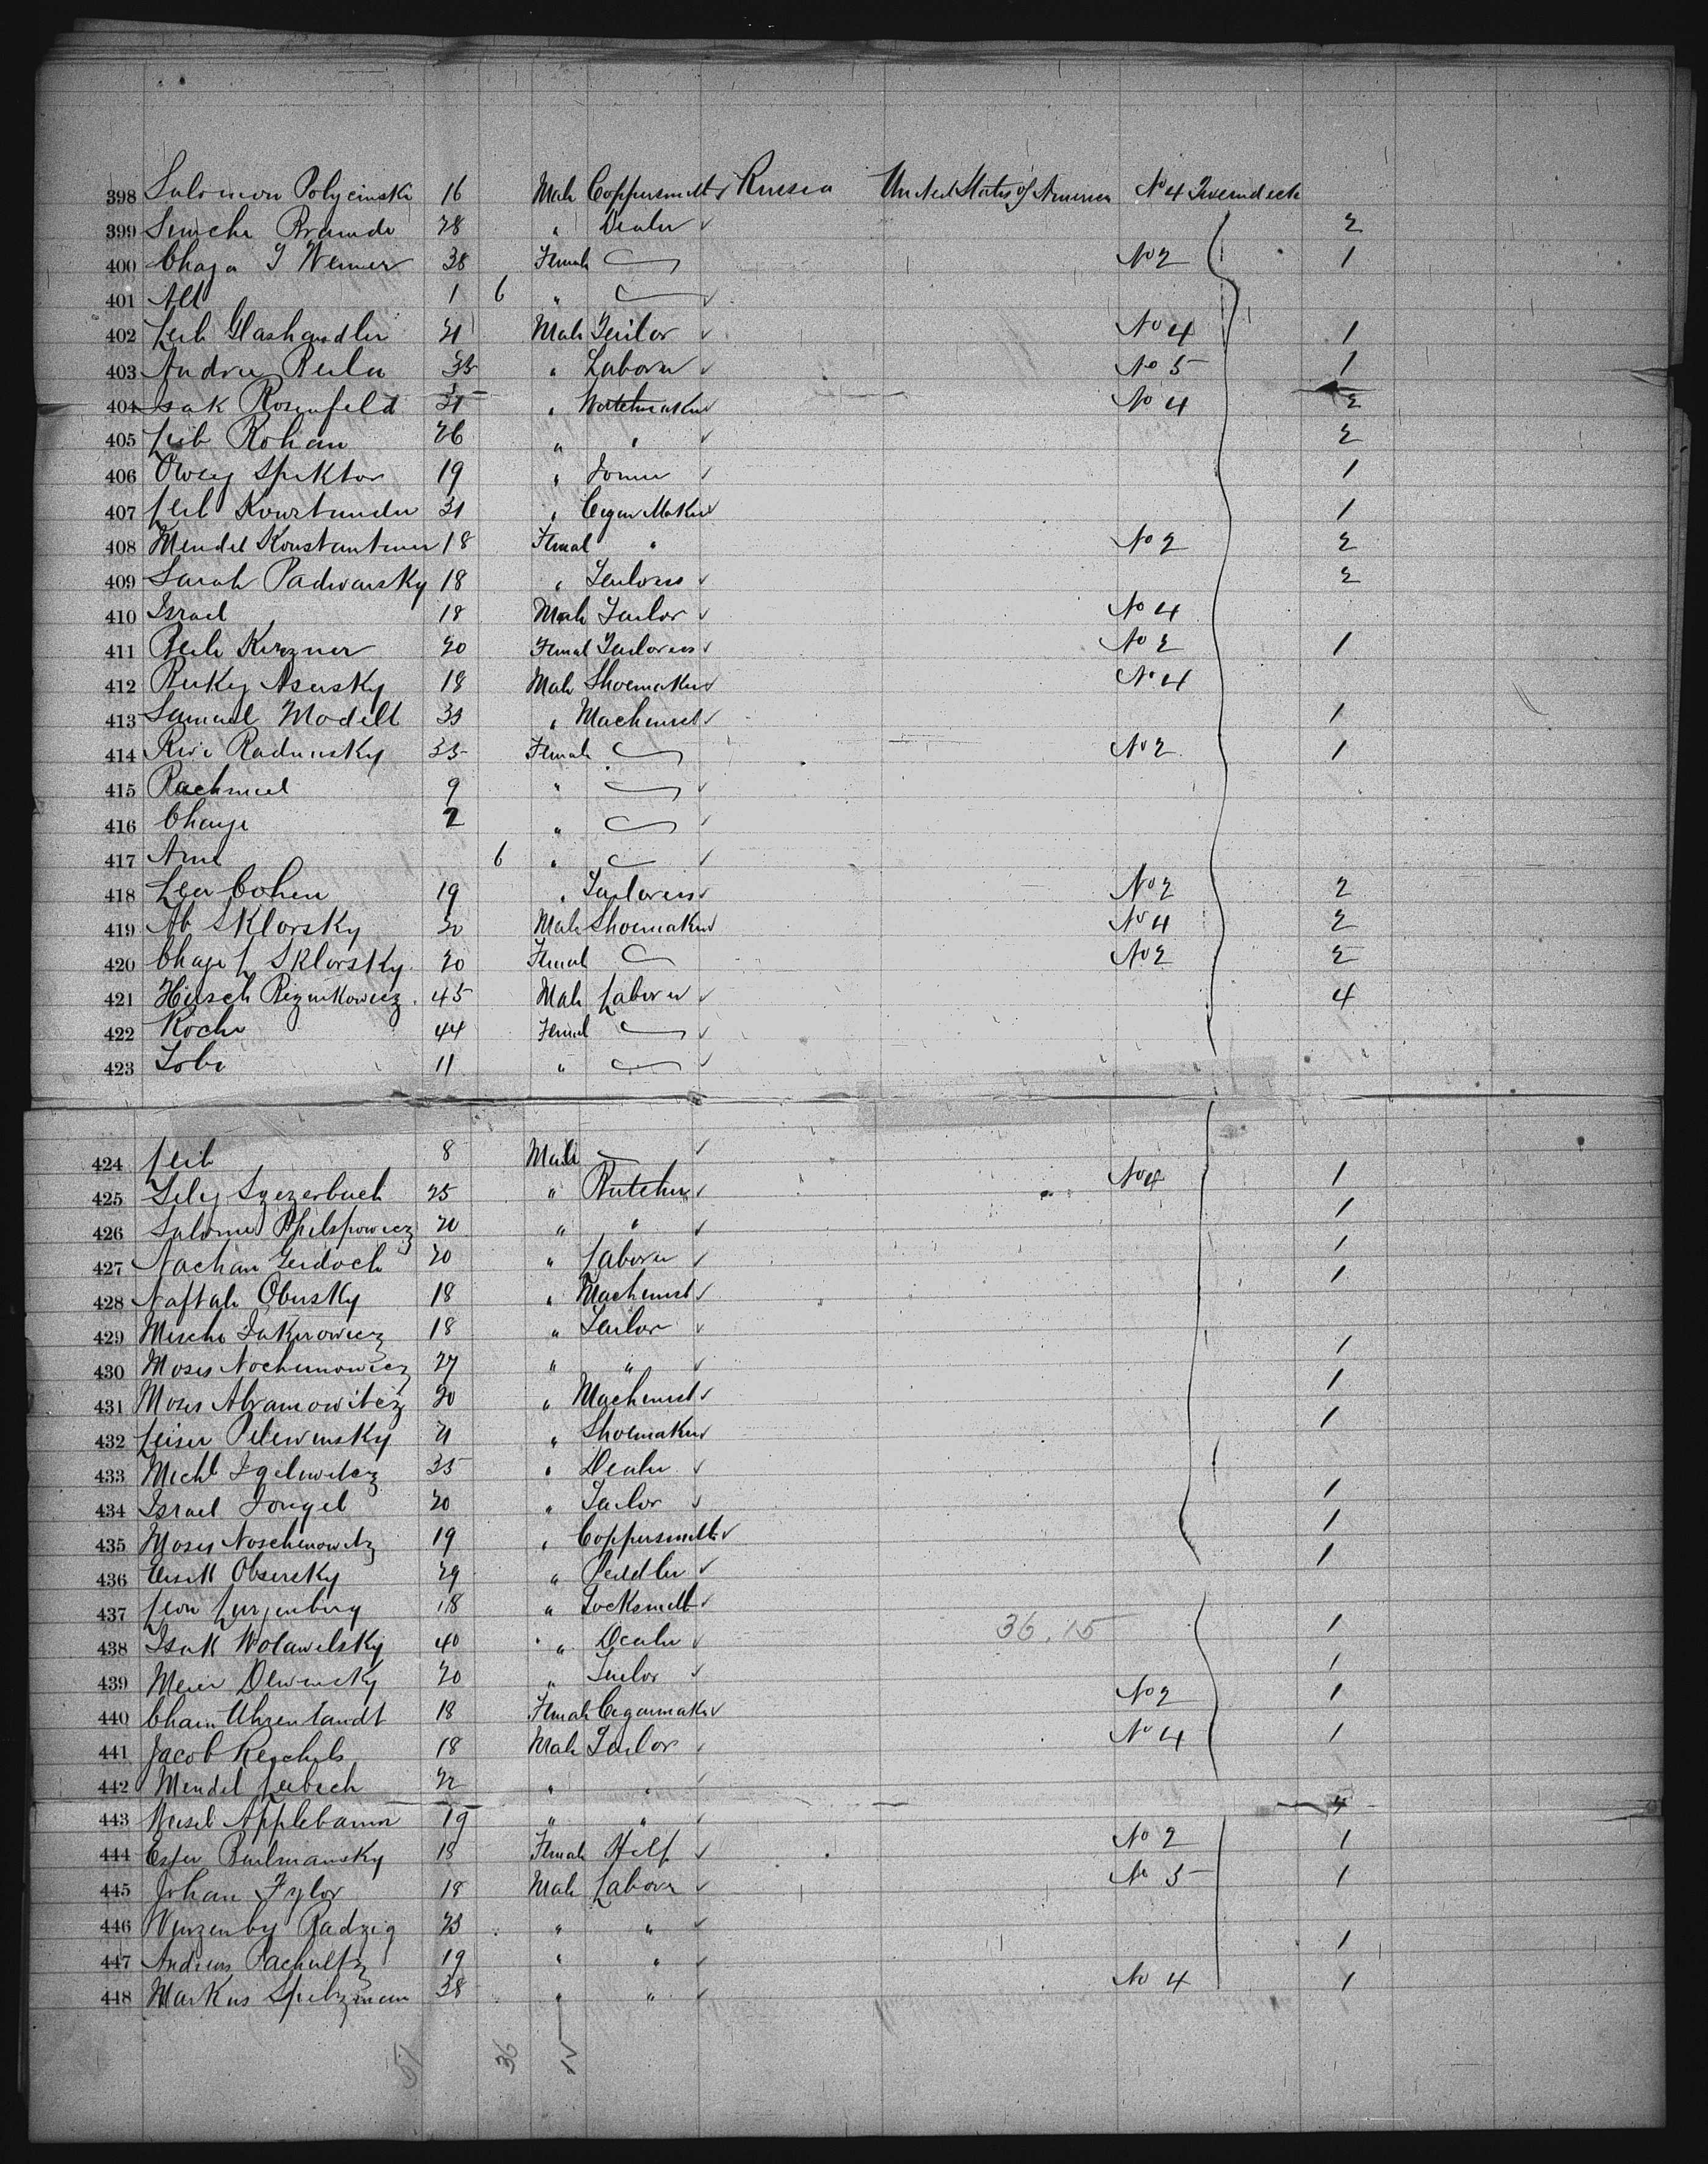 398 Salomon Polycinski 16 Male Coppersmith Russia United States of America No 4 Tweendeck
399 Simche Bramde 28 " Dealer 2
400 Chaja I Werner 38 Female No 2 1
401 Alt 1 6 "
402 Leib Glashandler 21 Male Tailor No 4 1
403 Andree 35 " Laborer No 5 1
404 Isak Rosenfeld 31 " Watchmaker No 4 2
405 Leib Kohan 26 " " 2
406 Owsey Spektor 19 " Joiner 1
407 Leib 31 " Cigar Maker 1
408 Mendel Konstantiner 18 Femal " No 2 2
409 Sarah Padwansky 18 " Tailoress 2
410 Israel 18 Male Tailor No 4
411 Beile Kirzner 20 Femal Tailoress No 2 1
412 Berkey Asersky 18 Male Shoemaker No 4
413 Samuel Modell 33 " Machinist 1
414 Riwe Radunsky 35 Female No 2 1
415 Rachmiel 9 "
416 Chaye 2 "
417 Arne 6 "
418 Lea Cohen 19 " Tailoress No 2 2
419 Ab Sklorsky 20 Male Shoemaker No 4 2
420 Chaje L Sklorsky 20 Femal No 2 2
421 Hirsch Reznikowicz 45 Male Laborer 4
422 Roche 44 Femal
423 Tobe 11 "
424 Leib 8 Male
425 Selig Szczerbuch 25 " Butcher No 4 1
426 20 " " 1
427 Nachan Gerdoch 20 " Laborer 1
428 Naftale Obersky 18 " Machinist 1
429 Mische 18 " Tailor
430 Moses Nochumowicz 27 " " 1
431 Moses Abramowitcz 20 " Machinist 1
432 Leiser Pelewinsky 21 " Shoemaker 1
433 Michl Igelewitcz 35 " Dealer
434 Israel Jorgel 20 " Tailor 1
435 Moses Noschenowitz 19 " Coppersmith 1
436 Obsersky 29 " Peddler 1
437 Leon 18 " Locksmith
438 Isak Wolawelsky 40 " Dealer 36.15 1
439 Meier Dewinsky 20 " Tailor 1
440 Chain Uhrenlandt 18 Female Cegarmaker No 2 1
441 Jacob Reichels 18 Male Tailor No 4 1
442 Mendel Leibsch 22 " "
443 Meisel Applebaum 19 " " 4
444 Ester Berlmansky 18 Female Help No 2 1
445 Johan Fylor 18 Male Laborer No 5 1
446 Radzig 23 " "
447 Andreas Pachultz 19 " " 1
448 Markus Spelzman 38 " " No 4 1
51 36 15